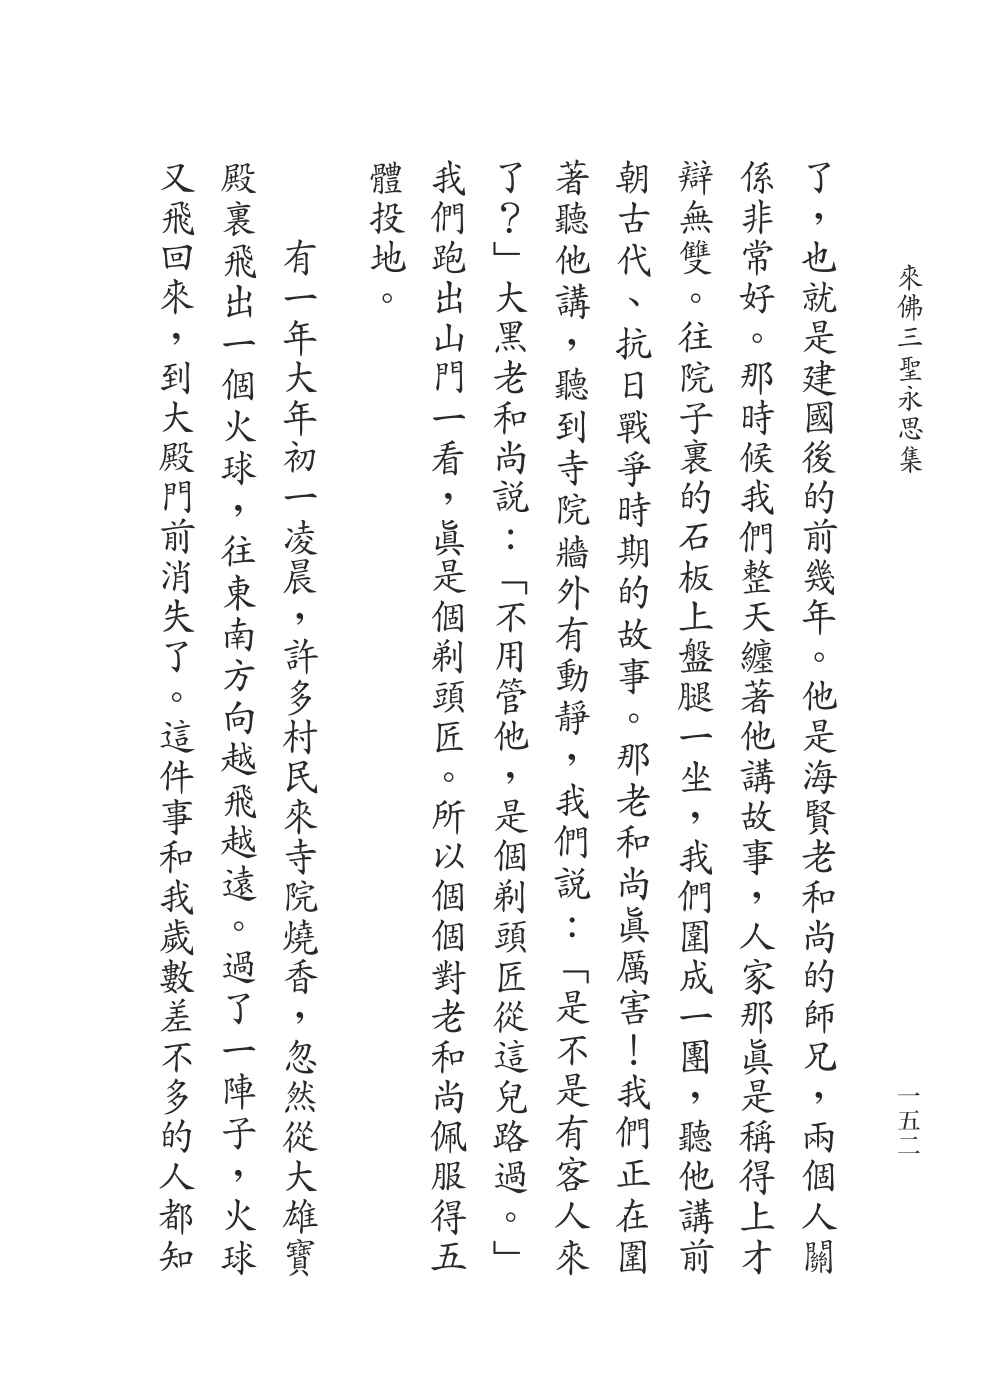 來佛三聖永思集
一五二
了，也就是建國後的前幾年。他是海賢老和尚的師兄，兩個人關
係非常好。那時候我們整天纏著他講故事，人家那眞是稱得上才
辯無雙。往院子裏的石板上盤腿一坐，我們圍成一團，聽他講前
朝古代、抗日戰爭時期的故事。那老和尚眞厲害！我們正在圍
著聽他講，聽到寺院牆外有動靜，我們說：「是不是有客人來
了？」大黑老和尚說：「不用管他，是個剃頭匠從這兒路過。」
我們跑出山門一看，眞是個剃頭匠。所以個個對老和尚佩服得五
體投地。
有一年大年初一凌晨，許多村民來寺院燒香，忽然從大雄寶
殿裏飛出一個火球，往東南方向越飛越遠。過了一陣子，火球
又飛回來，到大殿門前消失了。這件事和我歲數差不多的人都知